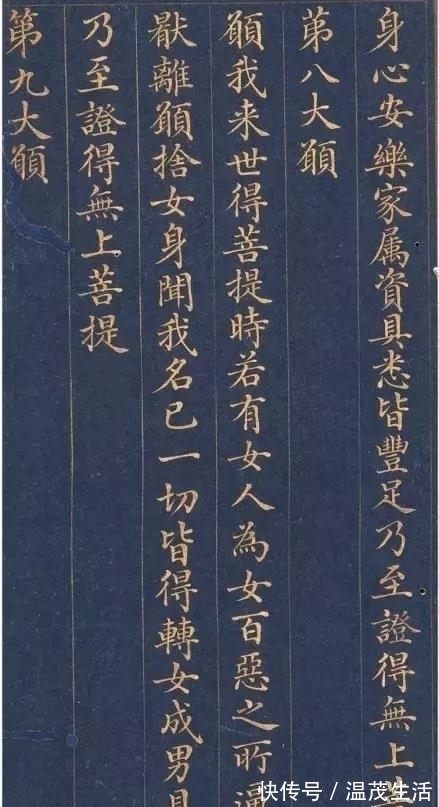 身心安樂家属資具悉皆豐足乃至證得無上
苐八大願
願我来世得菩提時若有女人為女百惡之所
猒離願捨女身聞我名已一切皆得轉女成男
乃至證得無上菩提
苐九大願
快传号/温茂生活